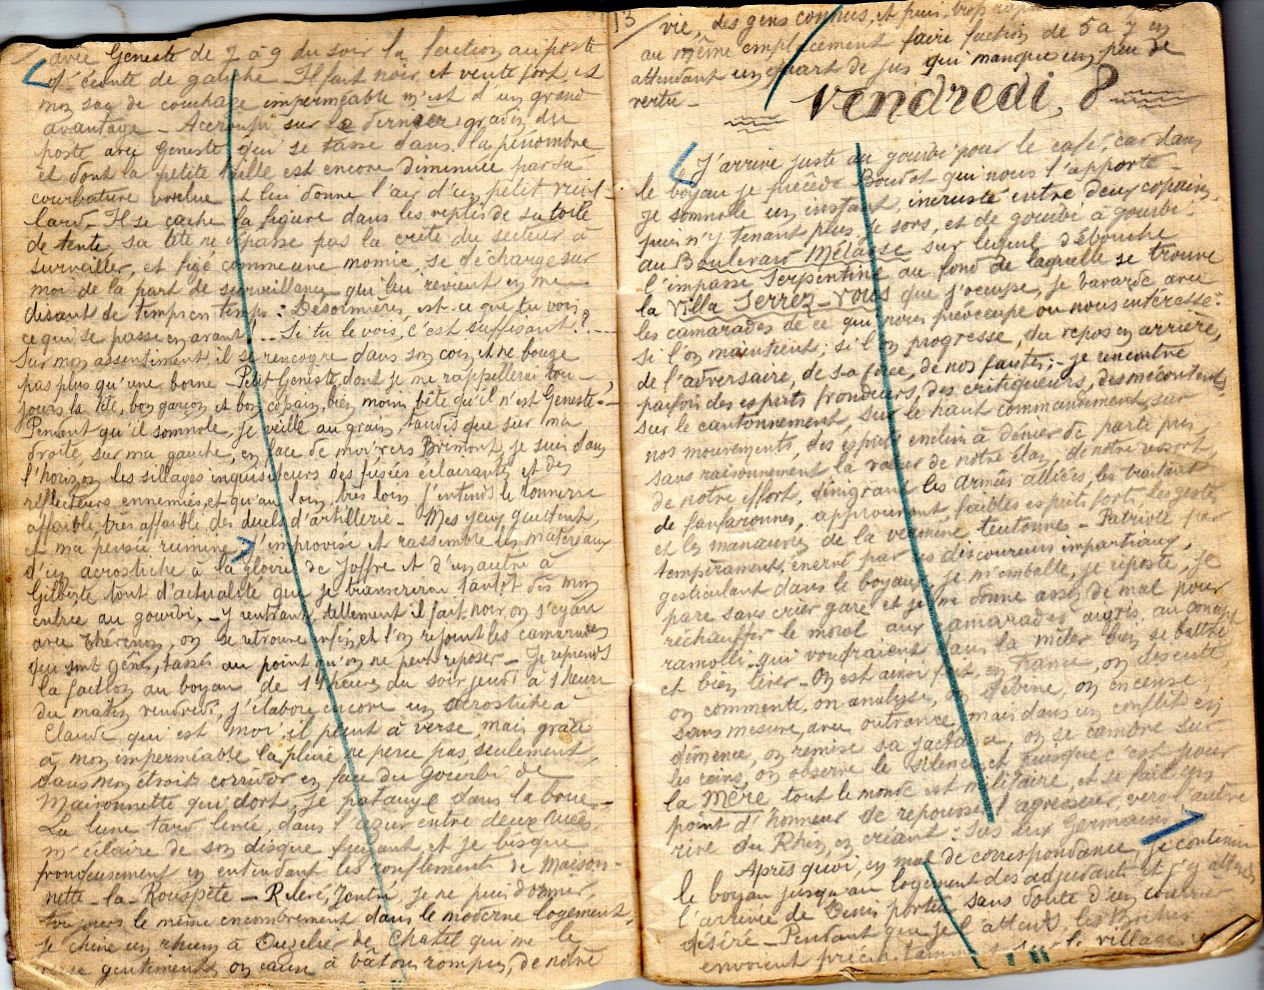 avec Geneste de 7 à 9 du soir la faction au poste
d'écoute de gauche - Il fait noir, et vente fort, et
mon sac de couchage imperméable m'est d'un grand
avantage - Accroupi sur le dernier gradin du
poste avec Geneste qui se tasse dans la pénombre
et dont la petite taille est encore diminuée par sa
courbature voulue et lui donne l'air d'un petit vieil-
lard - Il se cache la figure dans les replis de sa toile
de tente, sa tête ne dépasse pas la crête du secteur à
surveiller, et figé comme une momie, se décharge sur
moi de la part de surveillance qui lui revient en me
disant de temps en temps : Desormières, est-ce que tu vois
ce qui se passe en avant, ... Si tu le vois, c'est suffisant ?...
Sur mon assentiment il se rencogne dans son coin et ne bouge
pas plus qu'une borne - Petit Geniste, dont je me rappellerai tou-
jours la tête, bon garçon et bon copain, bien moins bête qu'il n'est Geneste. -
Pendant qu'il somnole, je veille au grain, tandis que sur ma
droite, sur ma gauche, en face de moi vers Brimont, je suis dans
l'horizon les sillages inquisiteurs des fusées éclairantes et des
réflecteurs ennemis, et qu'au loin, très loin j'entends le tonnerre
affaibli, très affaibli des duels d'artillerie - Mes yeux guettent,
et ma pensée rumine j'improvise et rassemble les matériaux
d'un acrostiche à la gloire de Joffre et d'un autre à
Gilberte tout d'actualité que je transcrirai tantôt dès mon
entrée au gourbi. - Y rentrant, tellement il fait noir, on s'égare
avec Thévenon, on se retrouve enfin, et l'on rejoint les camarades
qui sont gênés, tassés au point qu'on ne peut reposer - Je reprends
la faction au boyau de 11 heures du soir jeudi à 1 heure
du matin vendredi, j'élabore encore un acrostiche à
Claude qui est moi, il pleut à verse, mais grâce
à mon imperméable la pluie ne perce pas, seulement,
dans mon étroit corridor en face du gourbi de
Maisonnette qui dort, je patauge dans la boue -
La lune tard levée, dans l'azur entre deux nuées
m'éclaire de son disque fuyant et je bisque
frondeusement en entendant les ronflement de Maison-
nette - la - Rouspète - Relevé, rentré, je ne puis dormir
toujours le même encombrement dans le moderne logement,
Je chine un rhum à Duzelier de Chatel qui me le
verse gentiment, on cause à bâtons rompus, de notre
13 / vie, des gens connus, et puis, trop
au même emplacement faire faction de 5 à 7 en
attendant un quart de jus qui manque un peu de
vertu -
Vendredi, 8
J'arrive juste au gourbi pour le café, car dans
le boyau je précède Boudet qui nous l'apporte -
Je somnole un instant, incrusté entre deux copains,
puis n'y tenant plus je sors, et de gourbi à gourbi,
au Boulevard Mélasse sur lequel débouche
l'impasse Serpentine au fond de laquelle se trouve
la Villa Serrez-Vous que j'occupe, je bavarde avec
les camarades de ce qui nous préoccupe ou nous intéresse :
si l'on maintient, si l'on progresse, du repos en arrière,
de l'adversaire, de sa force, de nos fautes ; - je rencontre
parfois des esprits frondeurs, des critiqueurs, des mécontents,
sur le cantonnement, sur le haut commandement, sur
nos mouvements, des esprits enclins à dénier de parti pris
sans raisonnement la valeur de notre élan, de notre ressort,
de notre effort, dénigrant les armées alliées, les traitant
de fanfaronnes, approuvant faibles esprits forts les gestes
et les manœuvres de la vermine teutonne - Patriote par
tempérament, énervé par ces discoureurs impartiaux,
gesticulant dans le boyau, je m'emballe, je riposte, je
pare sans crier gare et je me donne assez de mal pour
réchauffer le moral aux camarades aigris au concept
ramolli qui voudraient sans la mêler bien se battre
et bien tirer - On est ainsi fait en France, on discute
on commente, on analyse, on débine, on encense,
sans mesure, avec outrance, mais dans un conflit en
démence, on remise sa jactance, on se cambre sur
les reins, on observe le silence, et puisque c'est pour
la Mère, tout le monde est militaire, et se fait un
point d'honneur de repousser l'agresseur, vers l'autre
rive du Rhin, en criant : Sus aux Germains
Après quoi, en mal de correspondance, je continue
le boyau jusqu'au logement des adjudants et j'y attends
l'arrivée de Denis porteur sans doute d'un courrier
désiré - Pendant que je l'attends, les Boches
envoient précipitamment sur le village